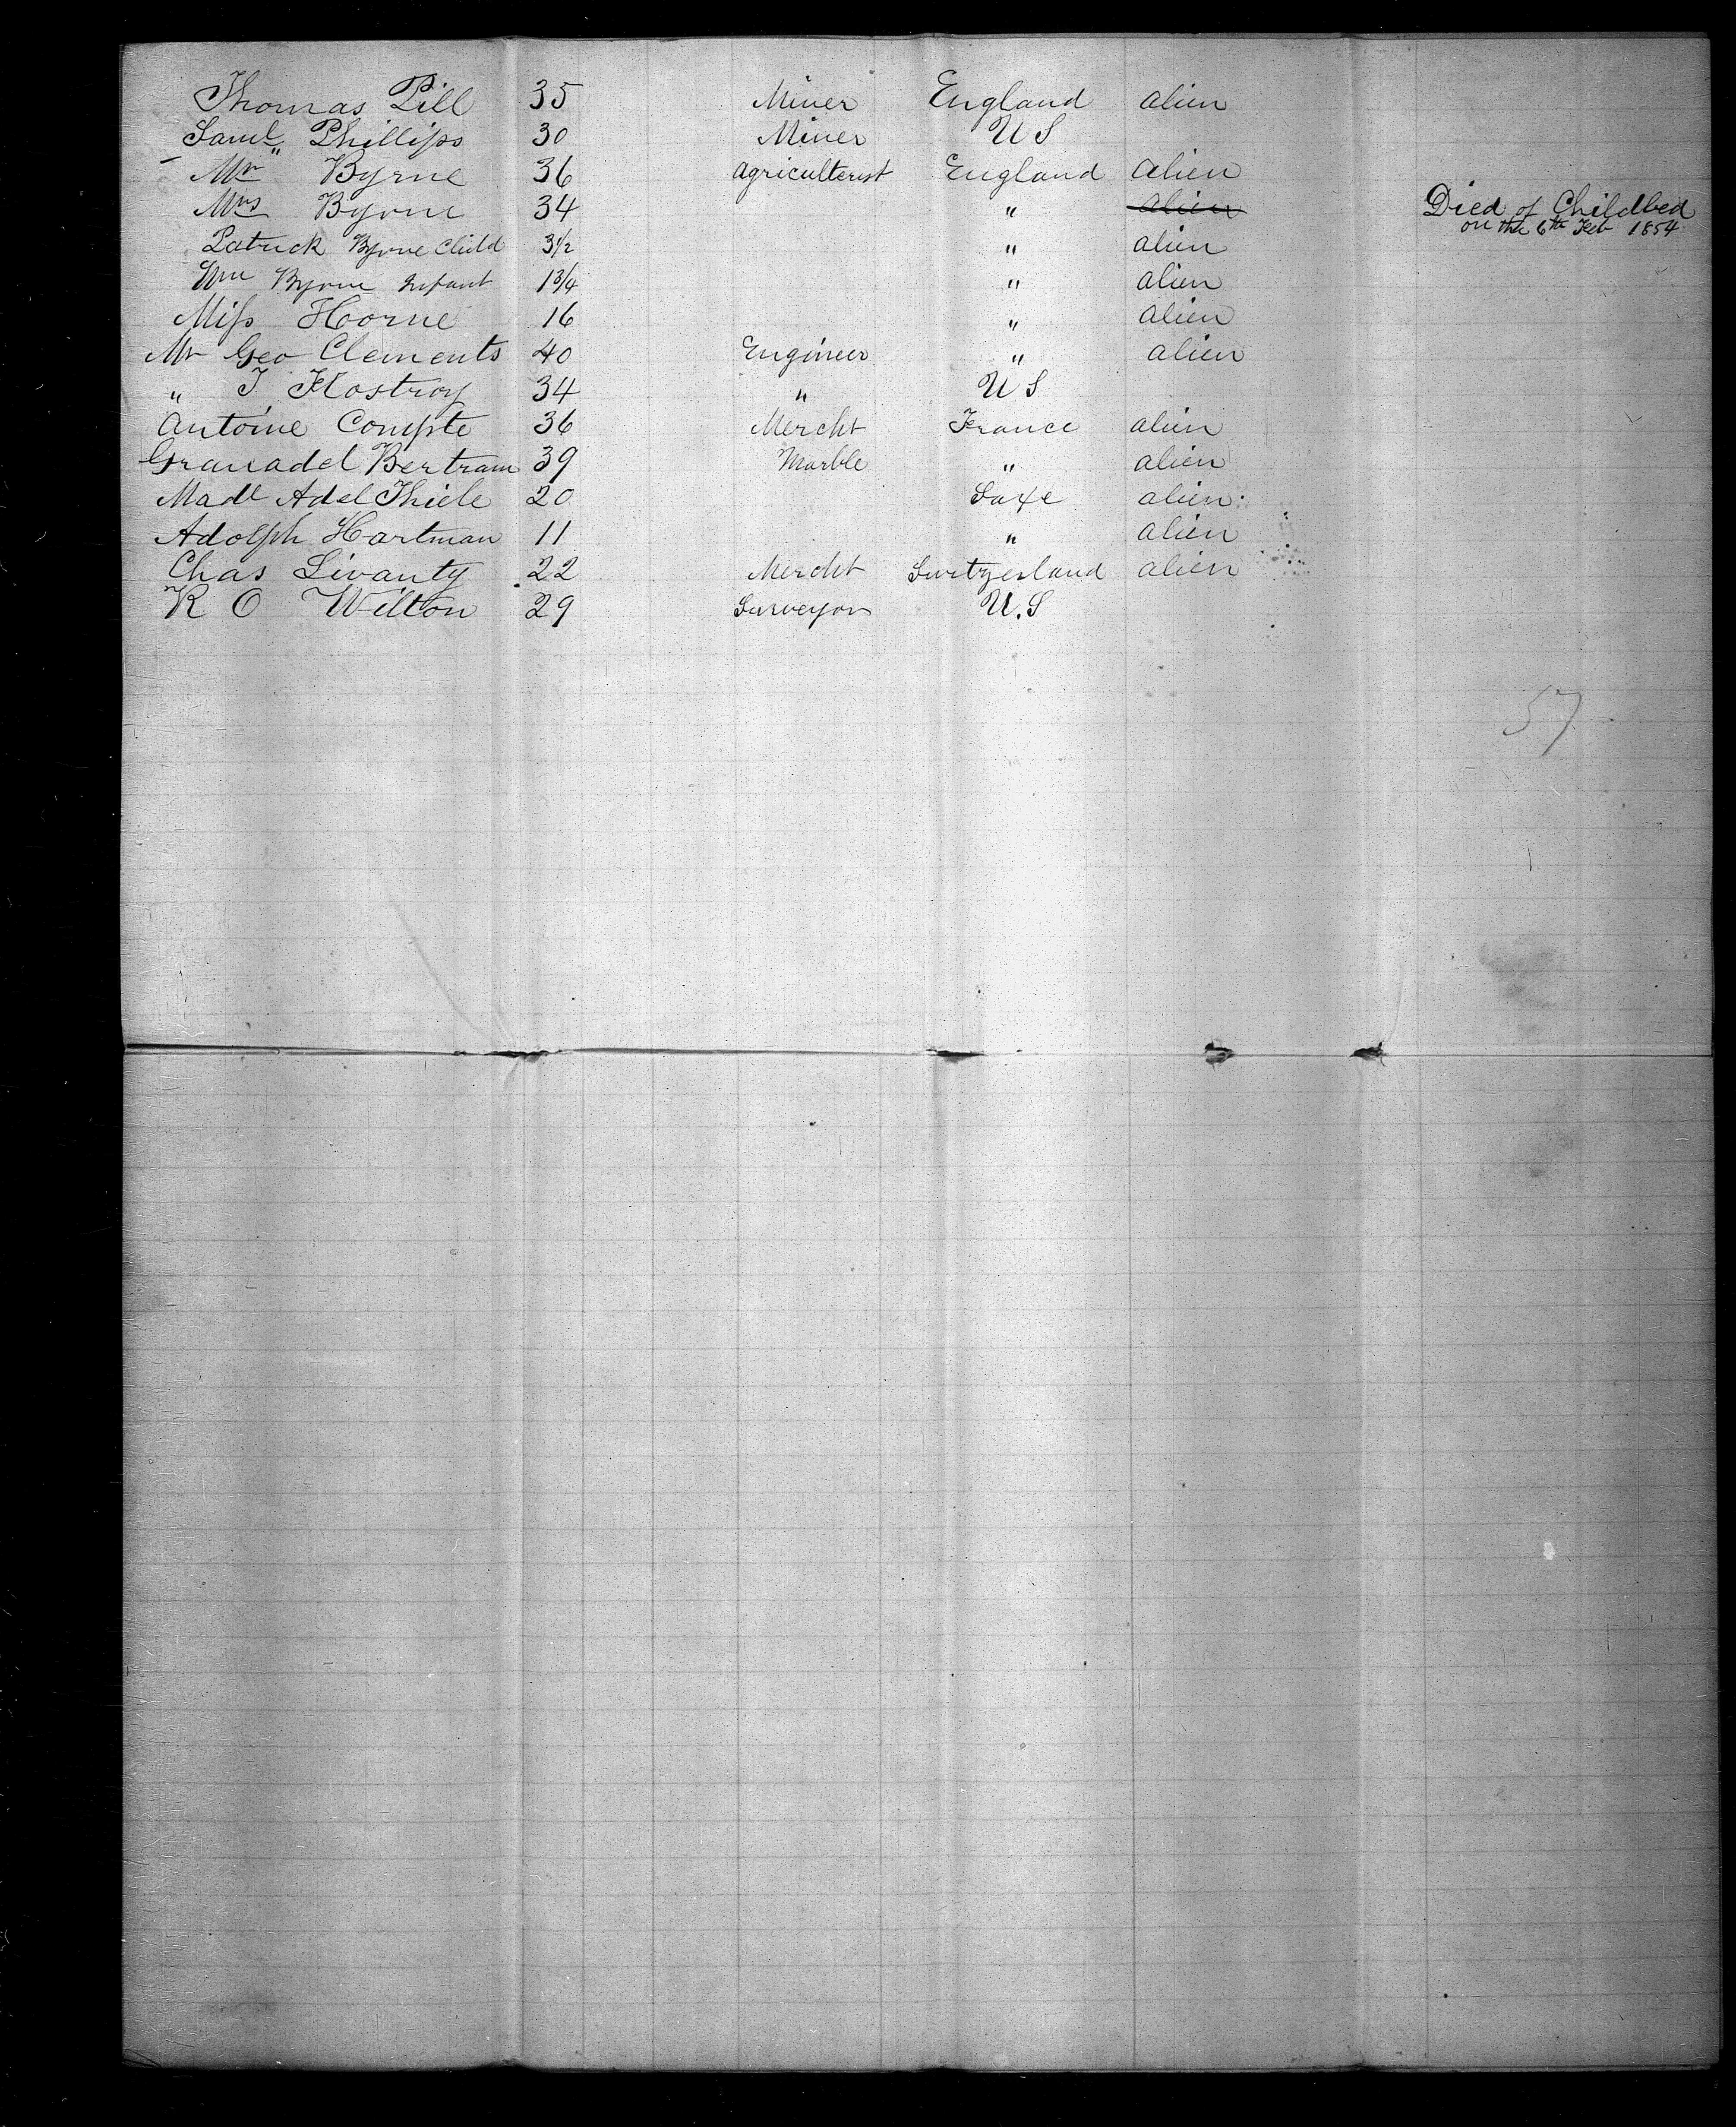 Thomas Pill 35 Miner England alien
Saml Phillips 30 Miner U S
Mr Byrne 36 Agriculterist England alien
Mrs Byrne 34 " alien Died of Childbed
on the 6th Feb 1854
Patrick Byrne Child 3½ " alien
Wm Byrne Infant 1¾ " alien
Miss Horne 16 " alien
Mr Geo Clements 40 Engineer " alien
" J 34 " U S
Antoine Compte 36 Mercht France alien
Granadel Bertram 39 Marble " alien
Madl Adel Thiele 20 Saxe alien
Adolph Hartman 11 " alien
Chas Livanty 22 Mercht Switzerland alien
R O Wilton 29 Surveyor U.S
57